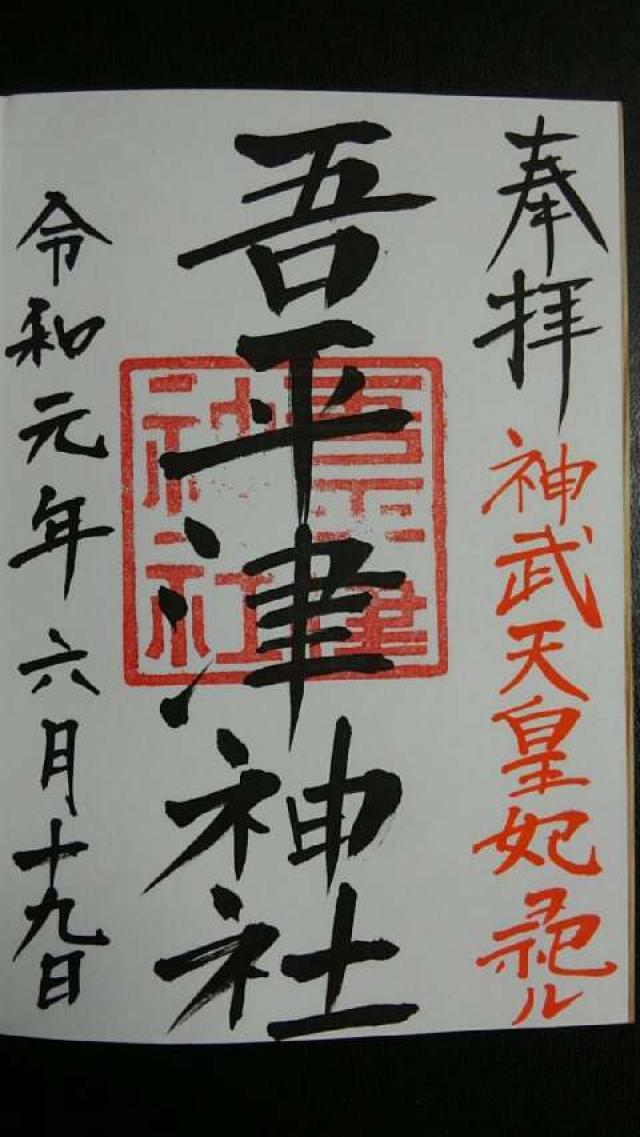 奉拝
神武天皇妃祀ル
吾平津神社
吾平津
神社
令和元年六月十九日